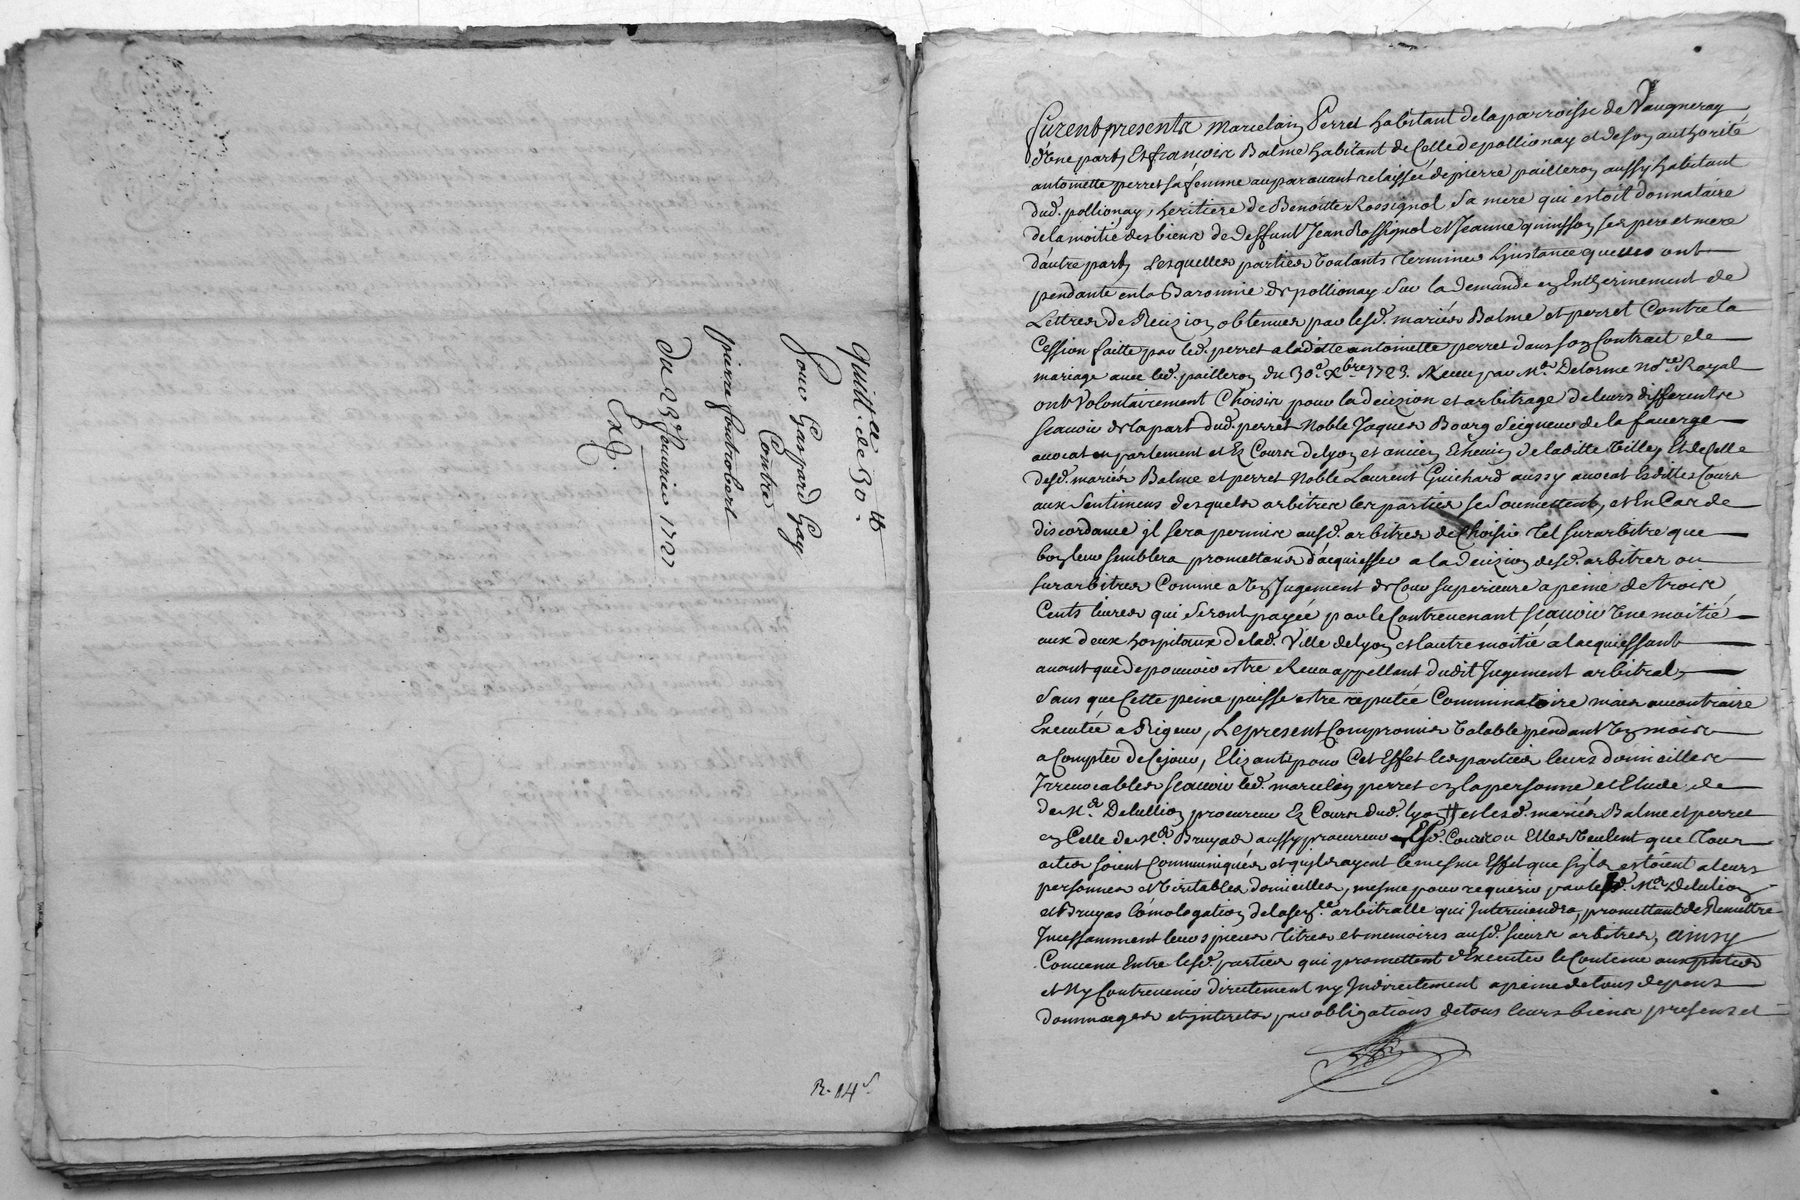 Quitt.ce de 30.tt
Pour Gaspard Gay
Contre
pierre
du 23e fevrier 1727
Exg.
R. 14 s
Furent presents Marcelain Perret habitant de la parroisse de Vaugneray
d'une part, Et françois Balme habitant de Celle de pollionay et de son authorité
antoinette perret sa femme auparavant relaissée de pierre pailleron aussy habitant
dud. pollionay, heritiere de Benoitte Rossignol sa mere qui estoit donnataire
de la moitié des biens de deffunt Jean Rossignol et Jeanne quinsson ses pere et mere
d'autre part, Lesquelles parties voulants terminer Linstance quelles ont
pendante en la Baronnie de pollionay sur la demande en Entherinement de
Lettres de Recizion obtenues par lesd. mariés Balme et perret Contre la
Cession faitte par led. perret a laditte antoinette perret dans son Contrait de
mariage avec led. pailleron du 30e Xbre 1723. Receu par Me Delorme nore Royal
ont Volontairement Choisis pour la decizion et arbitrage de leurs differents
scavoir de la part dud. perret Noble Jaques Bourg Seigneur de la faverge
avocat en parlement et Ez Cours de lyon et ancien Echevin de laditte Ville, Et de Celle
desd. mariés Balme et perret Noble Laurent Guichard aussy avocat Esdittes Cours
aux Sentimens desquels arbitres les parties se Soumettent, et En Cas de
discordance il sera permis ausd. arbitres de Choisir tel surarbitre que
bon leur semblera promettans d'acquiesser a la decizion desd. arbitres ou
surarbitres Comme a un Jugement de Cour Superieure a peine de trois
Cents livres qui seront payée par le Contrevenant scavoir une moitié
aux deux hospitaux de lad. Ville de lyon et lautre moitié a lacquiessant
avant que de pouvoir estre Receu appellent dudit Jugement arbitral,
sans que Cette peine puisse estre reputée Comminatoire mais au contraire
Executée a Rigeur, Le present Compromis Valable pendant un mois
a Compter de Ce jour, Elizants pour Cet Effet les parties leurs domicilles
Irrevocables scavoir led. marcelin perret en la personne et Etude de
de Me Delullion procureur Ez Cours dud. lyon et lesd. mariés Balme et perret
en Celle de Me Bruyas aussy procureur Esd. Cours ou Elles Veulent que tous
actes soient Communiqués et quils ayent le mesme Effet que sils estoient a leurs
personnes et Veritables domicilles, mesme pour requerir par lesd. Mes Delulion
et Bruyas L'omologation de la sence arbitralle qui Interviendra, promettant de Remettre
Incessamment leurs pieces titres et memoires ausd. sieurs arbitres, ainsy
Convenu Entre lesd. parties qui promettent d'Executer le Contenu aux presentes
et Ny Contrevenir directement ny Indirectement a peine de tous depens
dommages et interets par obligations de tous leurs biens presens et